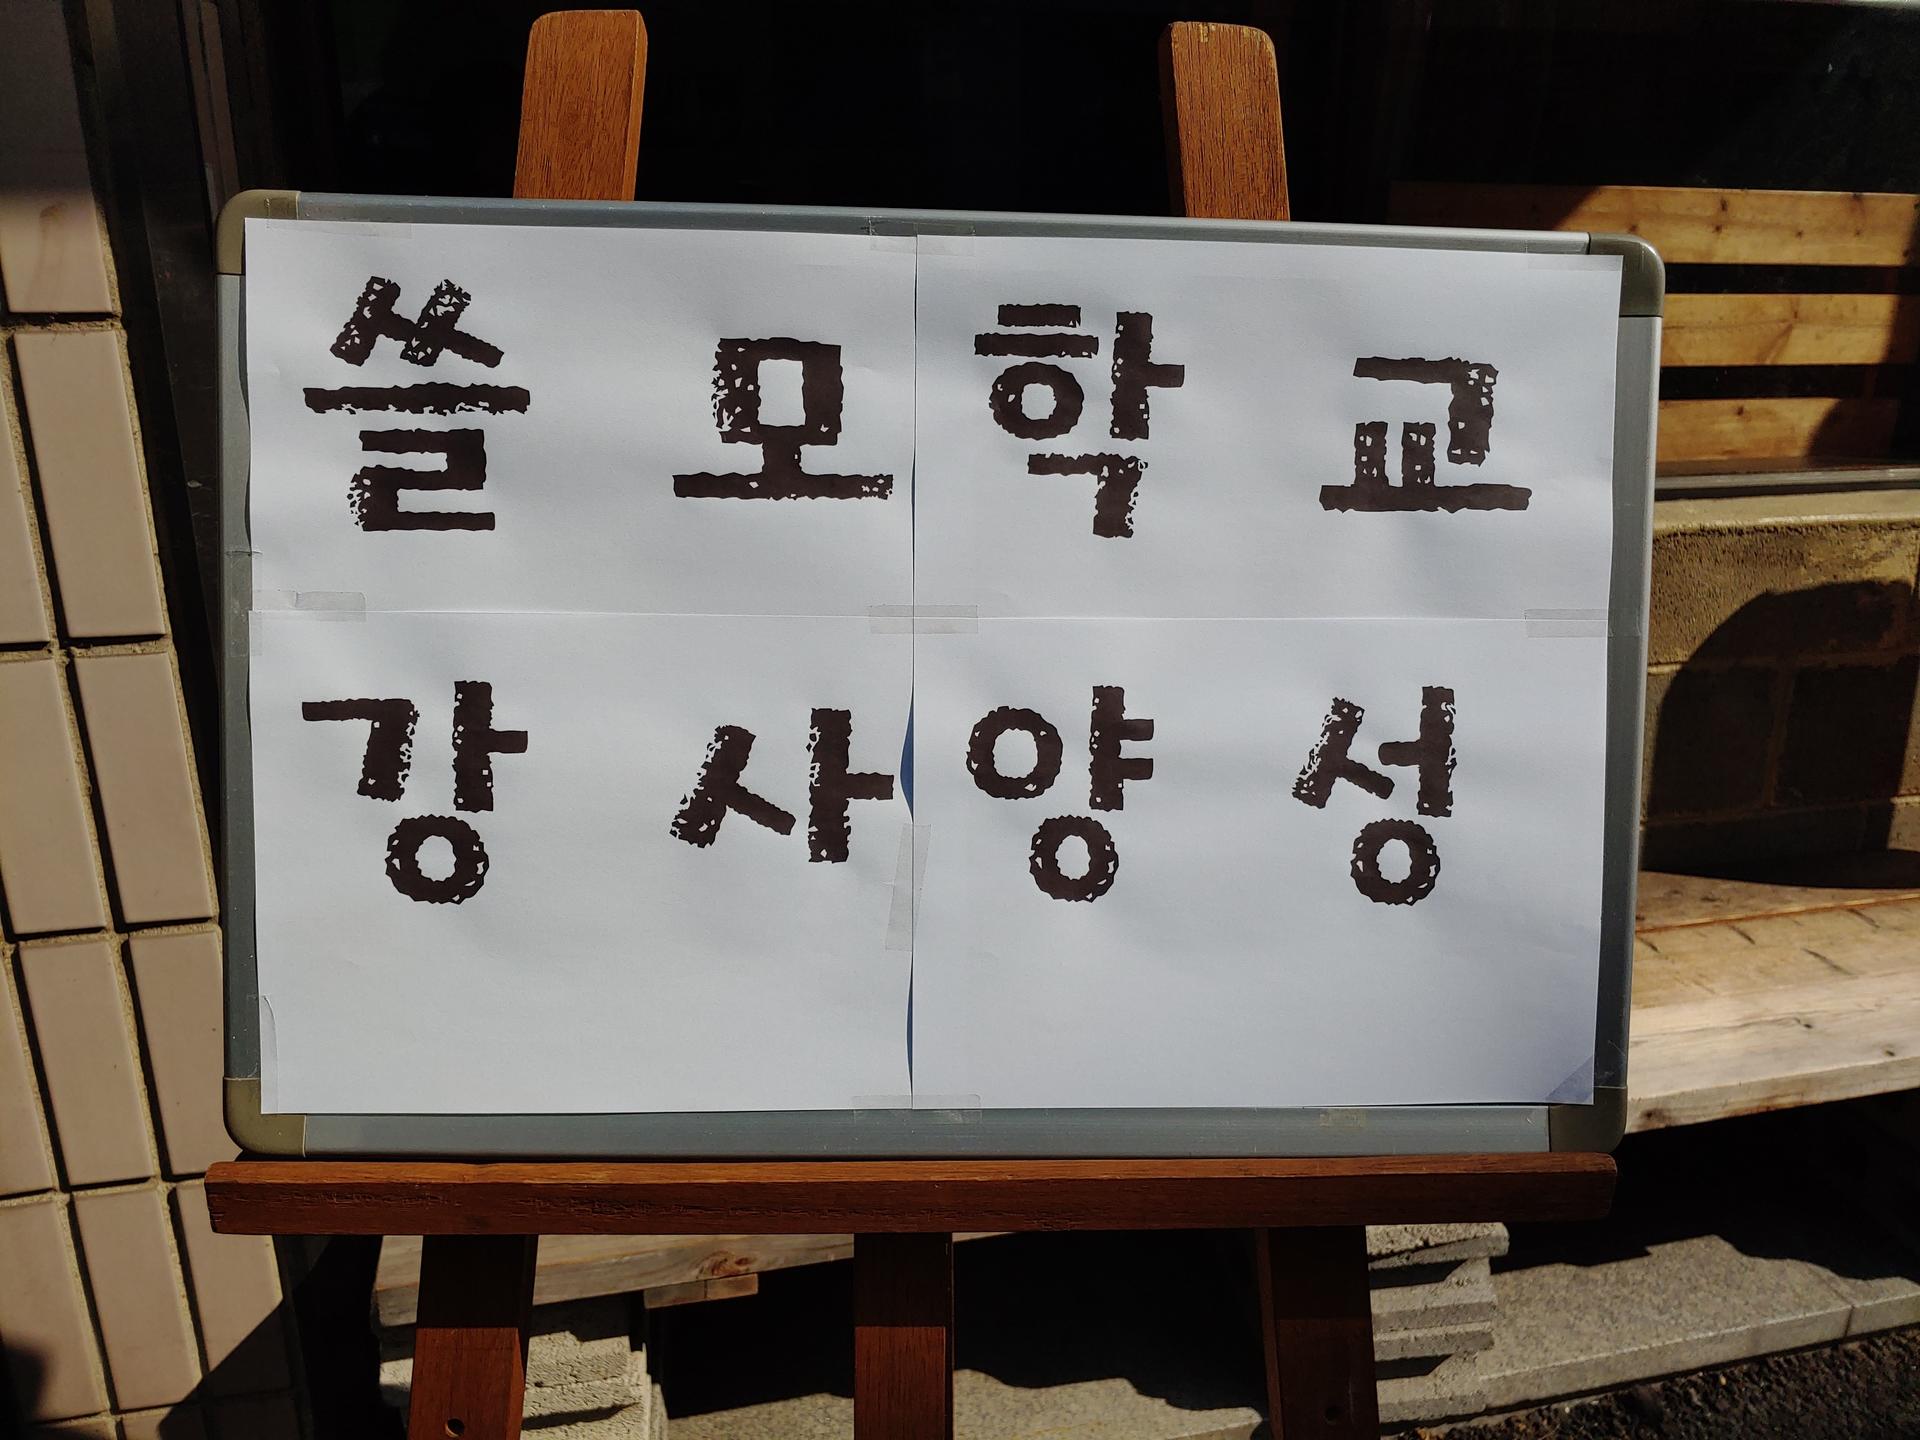 쓸모학교
강사양성